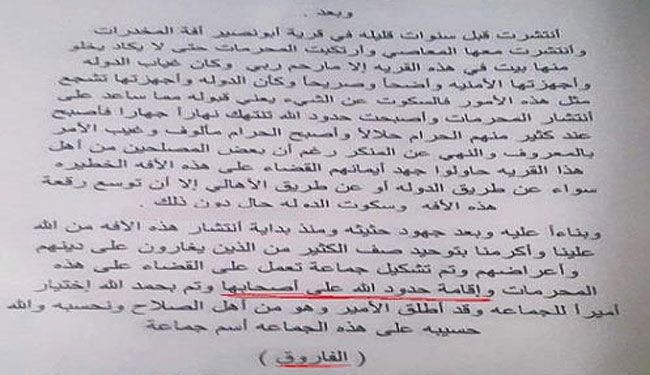 وبعد .
أنتشرت قبل سنوات قليله في قرية أبونصير آفة المخدرات
وأنتشرت معها المعاصي وأرتكبت المحرمات حتى لا يكاد يخلو
منها بيت في هذه القريه إلا مارحم ربي وكان غياب الدوله
وأجهزتها الأمنيه وأضحاً وصريحاً وكأن الدوله وأجهزتها تشجع
مثل هذه الأمور فالسكوت عن الشيء يعني قبوله مما ساعد على
أنتشار المحرمات وأصبحت حدود الله تنتهك نهاراً جهارا فأصبح
عند كثير منهم الحرام حلالاً وأصبح الحرام مألوف وغيب الأمر
بالمعروف والنهي عن المنكر رغم أن بعض المصلحين من أهل
هذا القريه حاولوا جهد أيمانهم القضاء على هذه الأفه الخطيره
سواء عن طريق الدوله أو عن طريق الأهالي إلا أن توسع رقعة
هذه الأفه وسكوت الدوله حال دون ذلك .
وبناءاً عليه وبعد جهود حثيثه ومنذ بداية أنتشار هذه الأفه من الله
علينا وأكرمنا بتوحيد صف الكثير من الذين يغارون على دينهم
وأعراضهم وتم تشكيل جماعة تعمل على القضاء على هذه
المحرمات وإقامة حدود الله على أصحابها وتم بحمد الله إختيار
أميراً للجماعه وقد أطلق الأمير وهو من أهل الصلاح ونحسبه والله
حسيبه على هذه الجماعه أسم جماعة
( الفاروق )